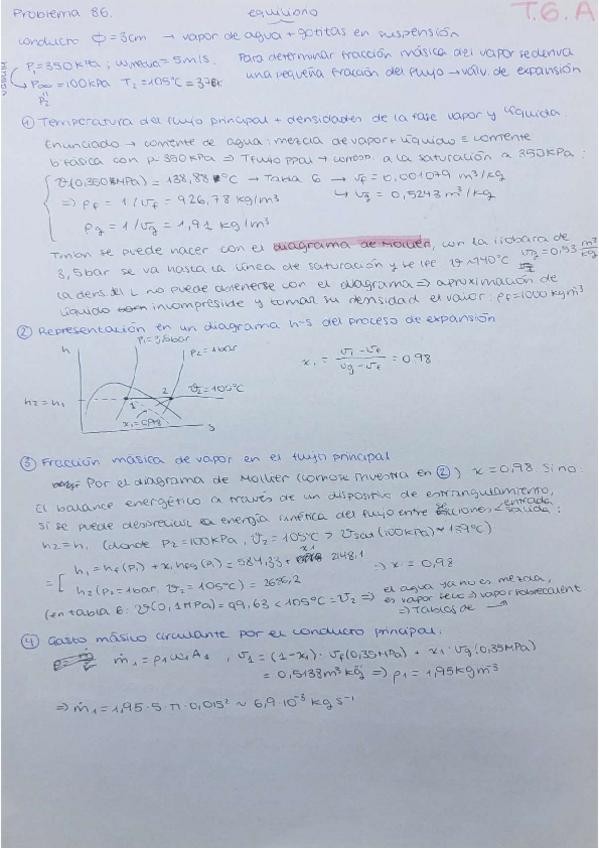 Problema 86.
equilibrio
T.6.A
conducto ϕ = 3cm → vapor de agua + gotitas en suspensión
P₁ = 350 kPa ; w₁ media = 5 m/s. Para determinar fracción másica del vapor se deriva
P = 100 kPa T₂ = 105°C = 378K una pequeña fracción del flujo → válv. de expansión
P₂
① Temperatura del flujo principal + densidades de la fase vapor y líquida.
Enunciado → corriente de agua: mezcla de vapor + líquido ≡ corriente
bifásica con p = 350 kPa ⇒ T flujo ppal → corresp. a la saturación a 350 kPa:
ϑ(0,350 MPa) = 138,88 °C → Tabla 6 → vf = 0,001079 m³/kg
⇒ ρf = 1/vf = 926,78 kg/m³ ↳ vg = 0,5243 m³/kg
ρg = 1/vg = 1,91 kg/m³
Tmbn se puede hacer con el diagrama de Mollier, con la isóbara de
3,5 bar se va hasta la línea de saturación y se lee ϑ ≈ 140°C vg = 0,53 m³/kg
La dens. del L no puede obtenerse con el diagrama ⇒ aproximación de
líquido incompresible y tomar su densidad el valor: ρf = 1000 kgm⁻³
② Representación en un diagrama h-s del proceso de expansión
h P₁ = 3,5 bar P₂ = 1 bar
x₁ = (v₁ - vf) / (vg - vf) = 0.98
h₂ = h₁ 1 2 ϑ₂ = 105°C
x₁ = 0,98 s
③ Fracción másica de vapor en el flujo principal
Por el diagrama de Mollier (como se muestra en ②) x = 0,98. Si no:
El balance energético a través de un dispositivo de estrangulamiento,
si se puede despreciar la energía cinética del flujo entre secciones < entrada salida :
h₂ = h₁ (donde P₂ = 100 kPa, ϑ₂ = 105°C > ϑsat (100 kPa) ≈ 139°C)
= h₁ = hf(P₁) + x₁ hfg(P₁) = 584,33 + x₁ 2148.1 ⇒ x₁ = 0,98
h₂ (P₂ = 1 bar, ϑ₂ = 105°C) = 2686,2
(en tabla 6: ϑ(0,1 MPa) = 99,63 < 105°C = ϑ₂ ⇒ el agua ya no es mezcla,
es vapor seco ⇒ vapor sobrecalent.
⇒ Tablas de
④ Gasto másico circulante por el conducto principal.
ṁ₁ = ρ₁ w₁ A₁ , v₁ = (1-x₁) · vf (0,35 MPa) + x₁ · vg (0,35 MPa)
= 0,5138 m³ kg⁻¹ ⇒ ρ₁ = 1,95 kg m⁻³
⇒ ṁ₁ = 1,95 · 5 · π · 0,015² ~ 6,9 · 10⁻³ kg s⁻¹